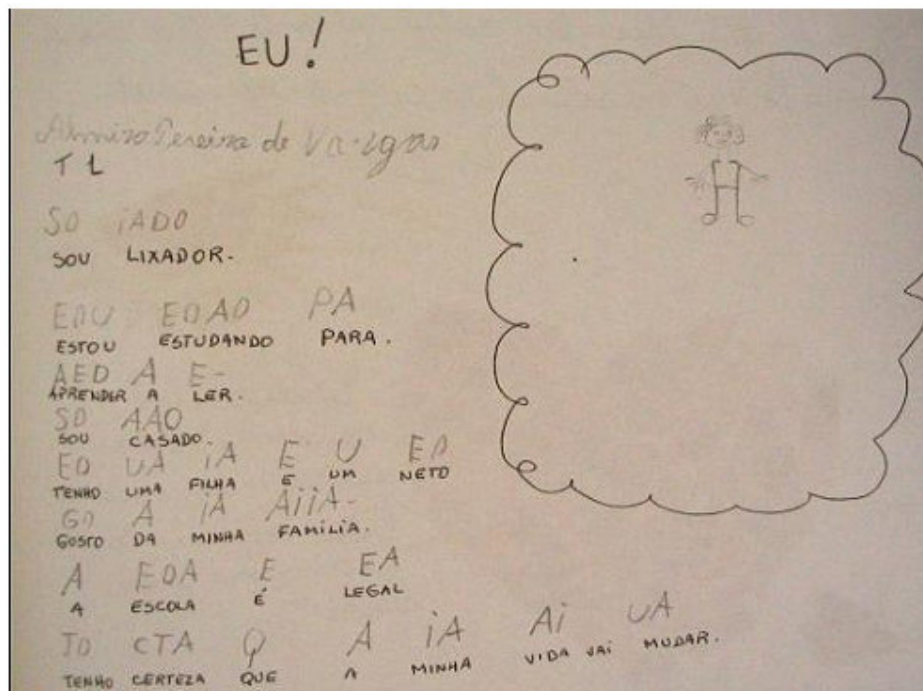 EU!
Almiro Pereira de Vargas
T L
SO iADO
SOU LIXADOR.
EOU EOAO PA
ESTOU ESTUDANDO PARA.
AED A E-
APRENDER A LER.
SO AAO
SOU CASADO.
EO UA iA E U EO
TENHO UMA FILHA E UM NETO
GO A iA AiiA-
GOSTO DA MINHA FAMÍLIA.
A EOA E EA
A ESCOLA É LEGAL
TO CTA Q A iA Ai UA
TENHO CERTEZA QUE A MINHA VIDA VAI MUDAR.